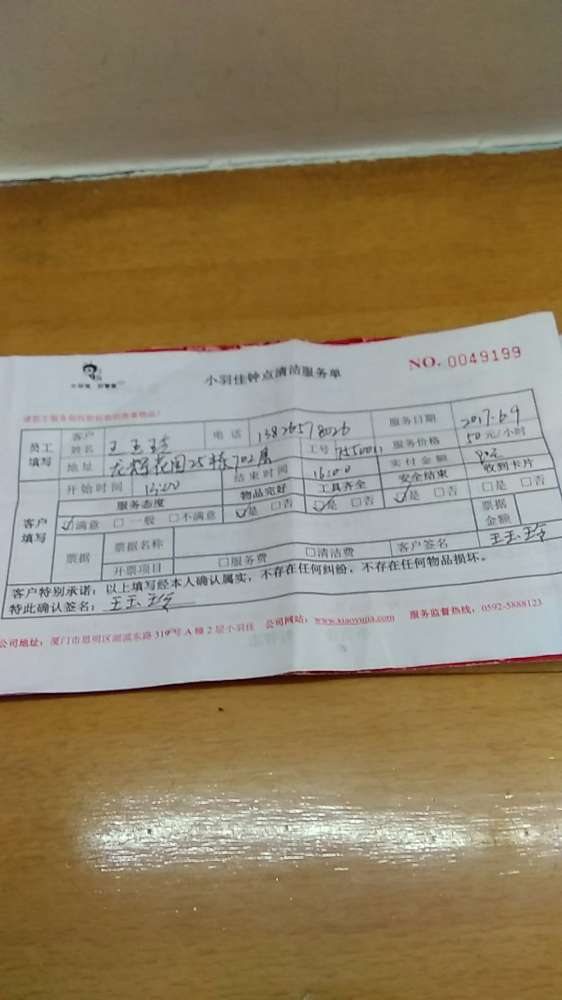 小羽佳钟点清洁服务单
NO. 0049199
员工填写 客户姓名 王玉玲 电话 13826578026 服务日期 2017.6.9
地址 龙辉花园25栋702房 工号 服务价格 50元/小时
开始时间 13:00 结束时间 实付金额 收到卡片
客户填写 服务态度 物品完好 工具齐全 安全结束
☑满意 □一般 □不满意 ☑是 □否 ☑是 □否 ☑是 □否 □是 □否
票据 票据名称 票据金额
开票项目 □服务费 □清洁费 客户签名 王玉玲
客户特别承诺:以上填写经本人确认属实,不存在任何纠纷,不存在任何物品损坏。
特此确认签名: 王玉玲
公司地址:厦门市思明区湖滨东路319号A幢2层小羽佳 公司网站:www.xiaoyujia.com 服务监督热线:0592-5888123